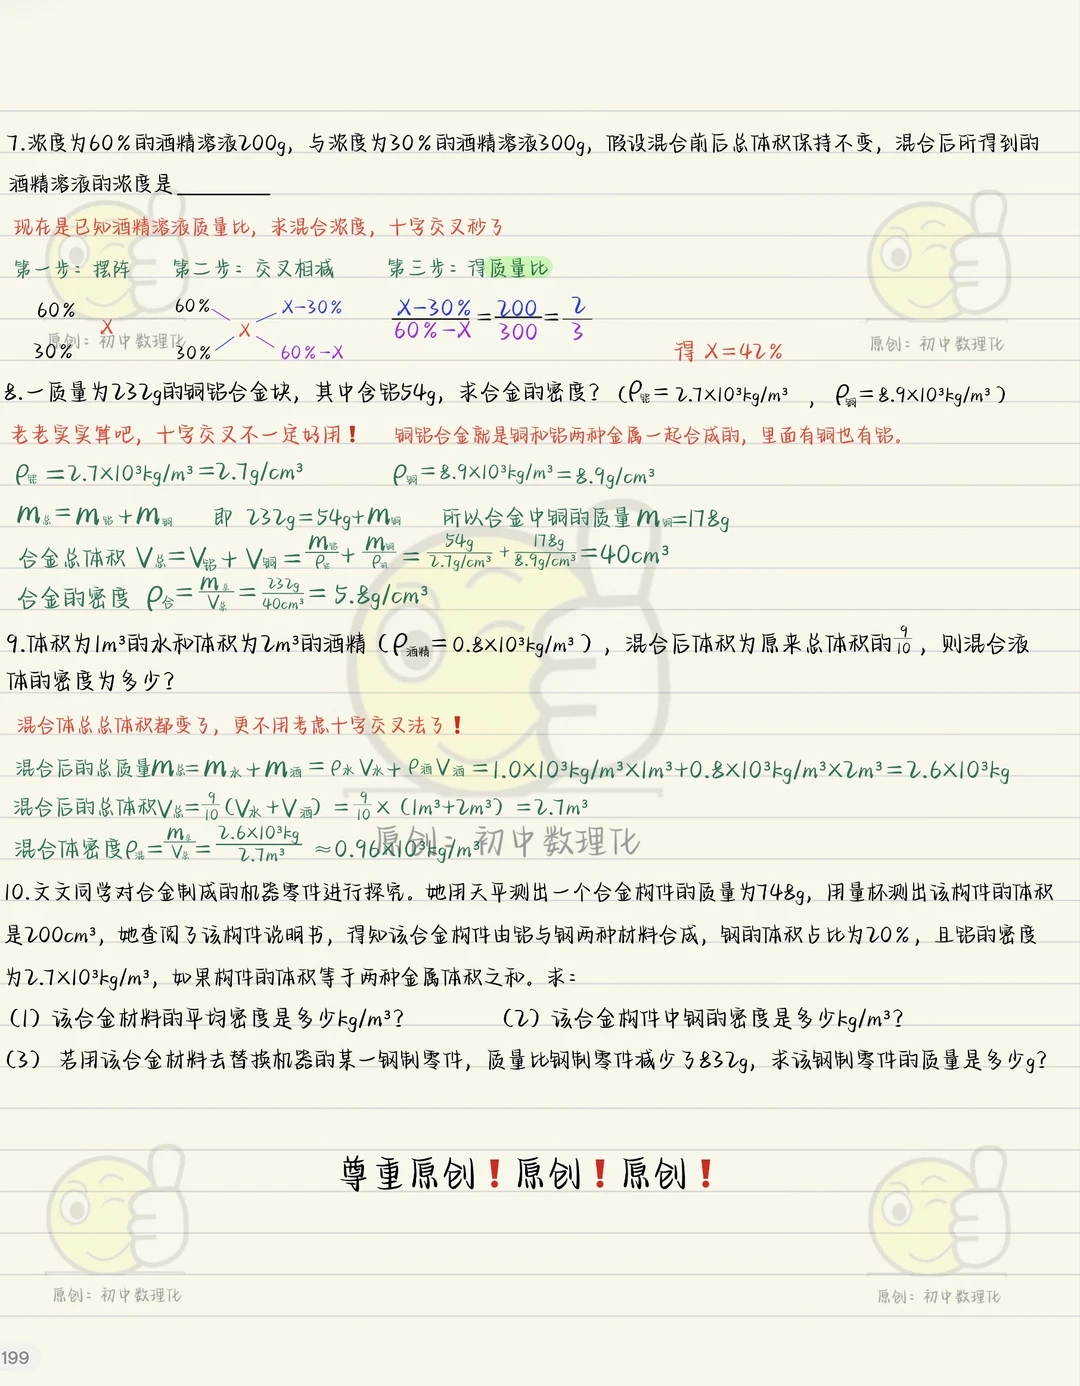 7.浓度为60%的酒精溶液200g，与浓度为30%的酒精溶液300g，假设混合前后总体积保持不变，混合后所得到的
酒精溶液的浓度是________
现在是已知酒精溶液质量比，求混合浓度，十字交叉秒了
第一步：摆阵 第二步：交叉相减 第三步：得质量比
60% X 30%
60% X 30% X-30% 60%-X
(X-30%)/(60%-X)=200/300=2/3
得 X=42%
原创：初中数理化
原创：初中数理化
8.一质量为232g的铜铝合金块，其中含铝54g，求合金的密度？（ρ铝=2.7×10³kg/m³ ，ρ铜=8.9×10³kg/m³）
老老实实算吧，十字交叉不一定好用！ 铜铝合金就是铜和铝两种金属一起合成的，里面有铜也有铝。
ρ铝=2.7×10³kg/m³=2.7g/cm³ ρ铜=8.9×10³kg/m³=8.9g/cm³
m总=m铝+m铜 即 232g=54g+m铜 所以合金中铜的质量m铜=178g
合金总体积 V总=V铝+V铜=m铝/ρ铝+m铜/ρ铜=54g/2.7g/cm³+178g/8.9g/cm³=40cm³
合金的密度 ρ合=m总/V总=232g/40cm³=5.8g/cm³
9.体积为1m³的水和体积为2m³的酒精（ρ酒精=0.8×10³kg/m³），混合后体积为原来总体积的9/10，则混合液
体的密度为多少？
混合体总总体积都变了，更不用考虑十字交叉法了！
混合后的总质量m总=m水+m酒=ρ水V水+ρ酒V酒=1.0×10³kg/m³×1m³+0.8×10³kg/m³×2m³=2.6×10³kg
混合后的总体积V总=9/10(V水+V酒)=9/10×(1m³+2m³)=2.7m³
混合体密度ρ混=m总/V总=2.6×10³kg/2.7m³≈0.96×10³kg/m³
原创：初中数理化
10.文文同学对合金制成的机器零件进行探究。她用天平测出一个合金构件的质量为748g，用量杯测出该构件的体积
是200cm³，她查阅了该构件说明书，得知该合金构件由铝与钢两种材料合成，钢的体积占比为20%，且铝的密度
为2.7×10³kg/m³，如果构件的体积等于两种金属体积之和。求：
（1）该合金材料的平均密度是多少kg/m³？ （2）该合金构件中钢的密度是多少kg/m³？
（3） 若用该合金材料去替换机器的某一钢制零件，质量比钢制零件减少了832g，求该钢制零件的质量是多少g？
尊重原创！原创！原创！
原创：初中数理化
原创：初中数理化
199